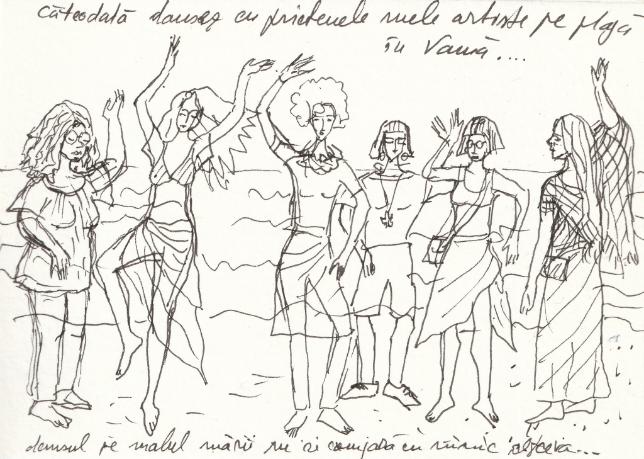 câteodată dansez cu prietenele mele artiste pe plaja
în Vamă....
dansul pe malul mării nu se compară cu nimic altceva...